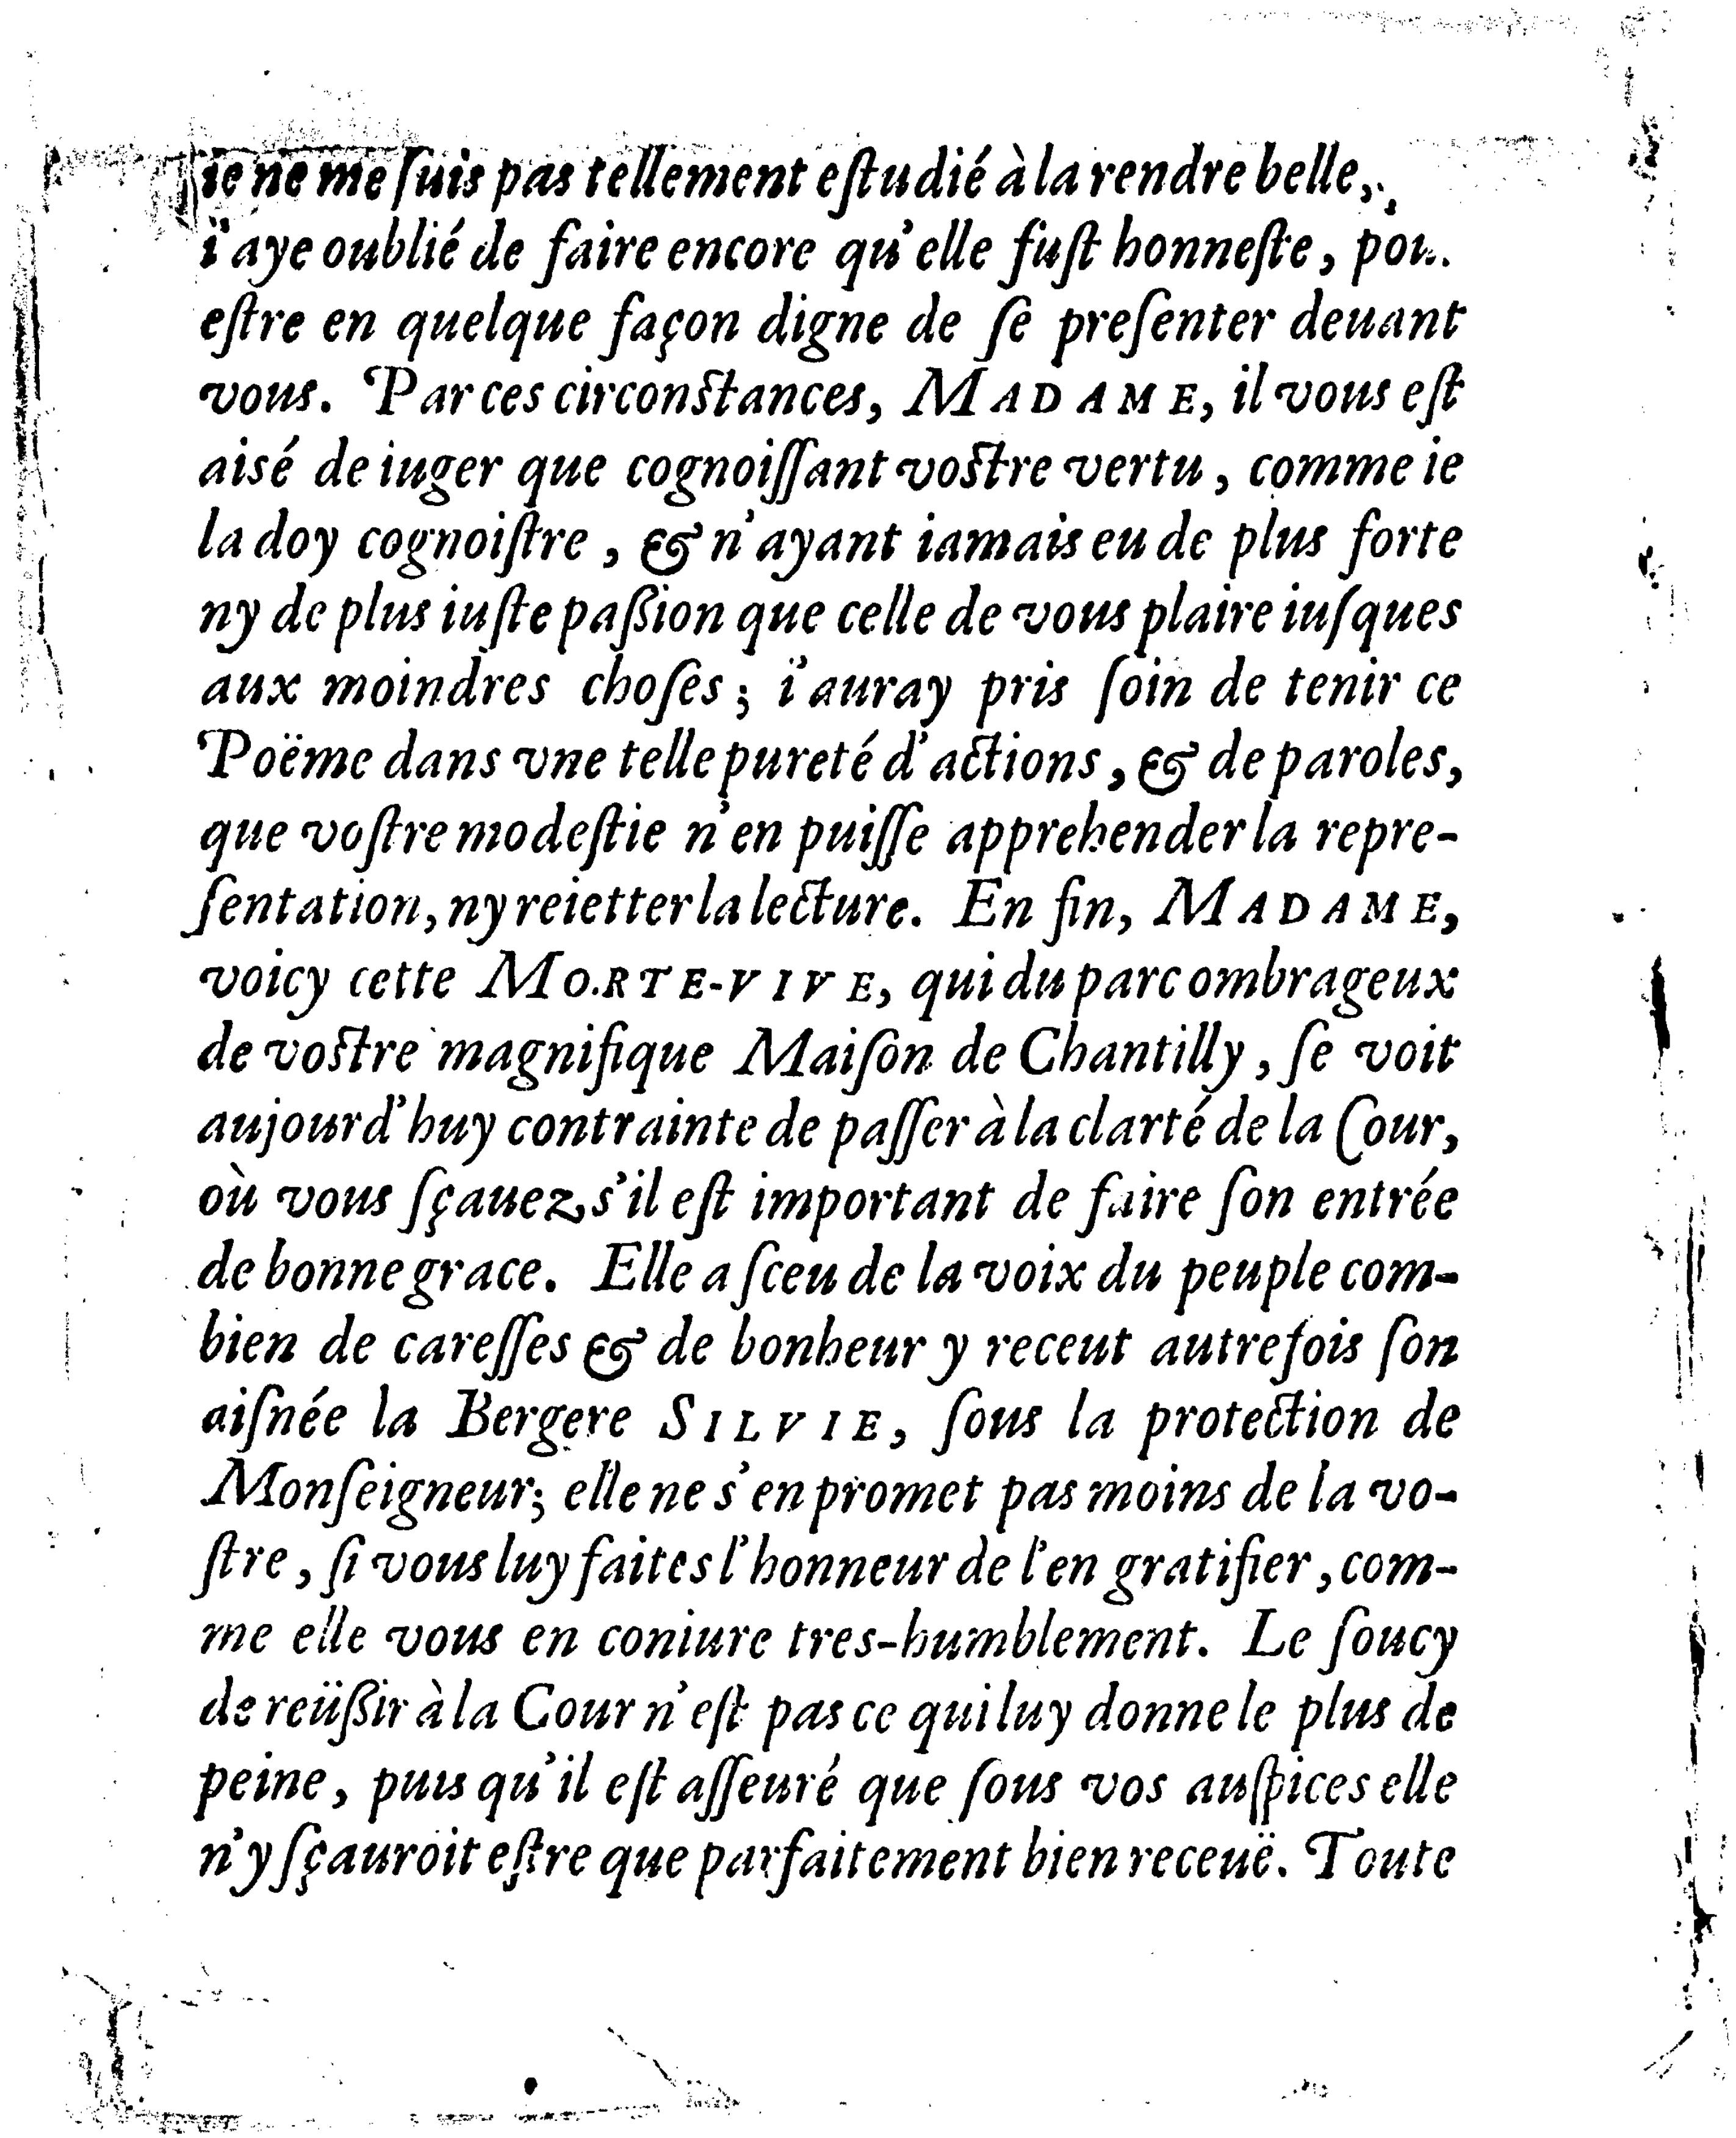 ie ne me ſuis pas tellement eſtudié à la rendre belle,
i'aye oublié de faire encore qu'elle fuſt honneſte,
eſtre en quelque façon digne de ſe preſenter deuant
vous. Par ces circonſtances, MADAME, il vous eſt
aisé de iuger que cognoiſſant voſtre vertu, comme ie
la doy cognoiſtre, & n'ayant iamais eu de plus forte
ny de plus iuſte paßion que celle de vous plaire iuſques
aux moindres choſes; i'auray pris ſoin de tenir ce
Poëme dans vne telle pureté d'actions, & de paroles,
que voſtre modeſtie n'en puiſſe apprehender la repre-
ſentation, ny reietter la lecture. En fin, MADAME,
voicy cette MORTE-VIVE, qui du parc ombrageux
de voſtre magnifique Maiſon de Chantilly, ſe voit
aujourd'huy contrainte de paſſer à la clarté de la Cour,
où vous ſçauez s'il eſt important de faire ſon entrée
de bonne grace. Elle a ſceu de la voix du peuple com-
bien de careſſes & de bonheur y receut autrefois ſon
aiſnée la Bergere SILVIE, ſous la protection de
Monſeigneur; elle ne s'en promet pas moins de la vo-
ſtre, ſi vous luy faites l'honneur de l'en gratifier, com-
me elle vous en coniure tres-humblement. Le ſoucy
de reüßir à la Cour n'eſt pas ce qui luy donne le plus de
peine, puis qu'il eſt aſſeuré que ſous vos auſpices elle
n'y ſçauroit eſtre que parfaitement bien receuë. Toute